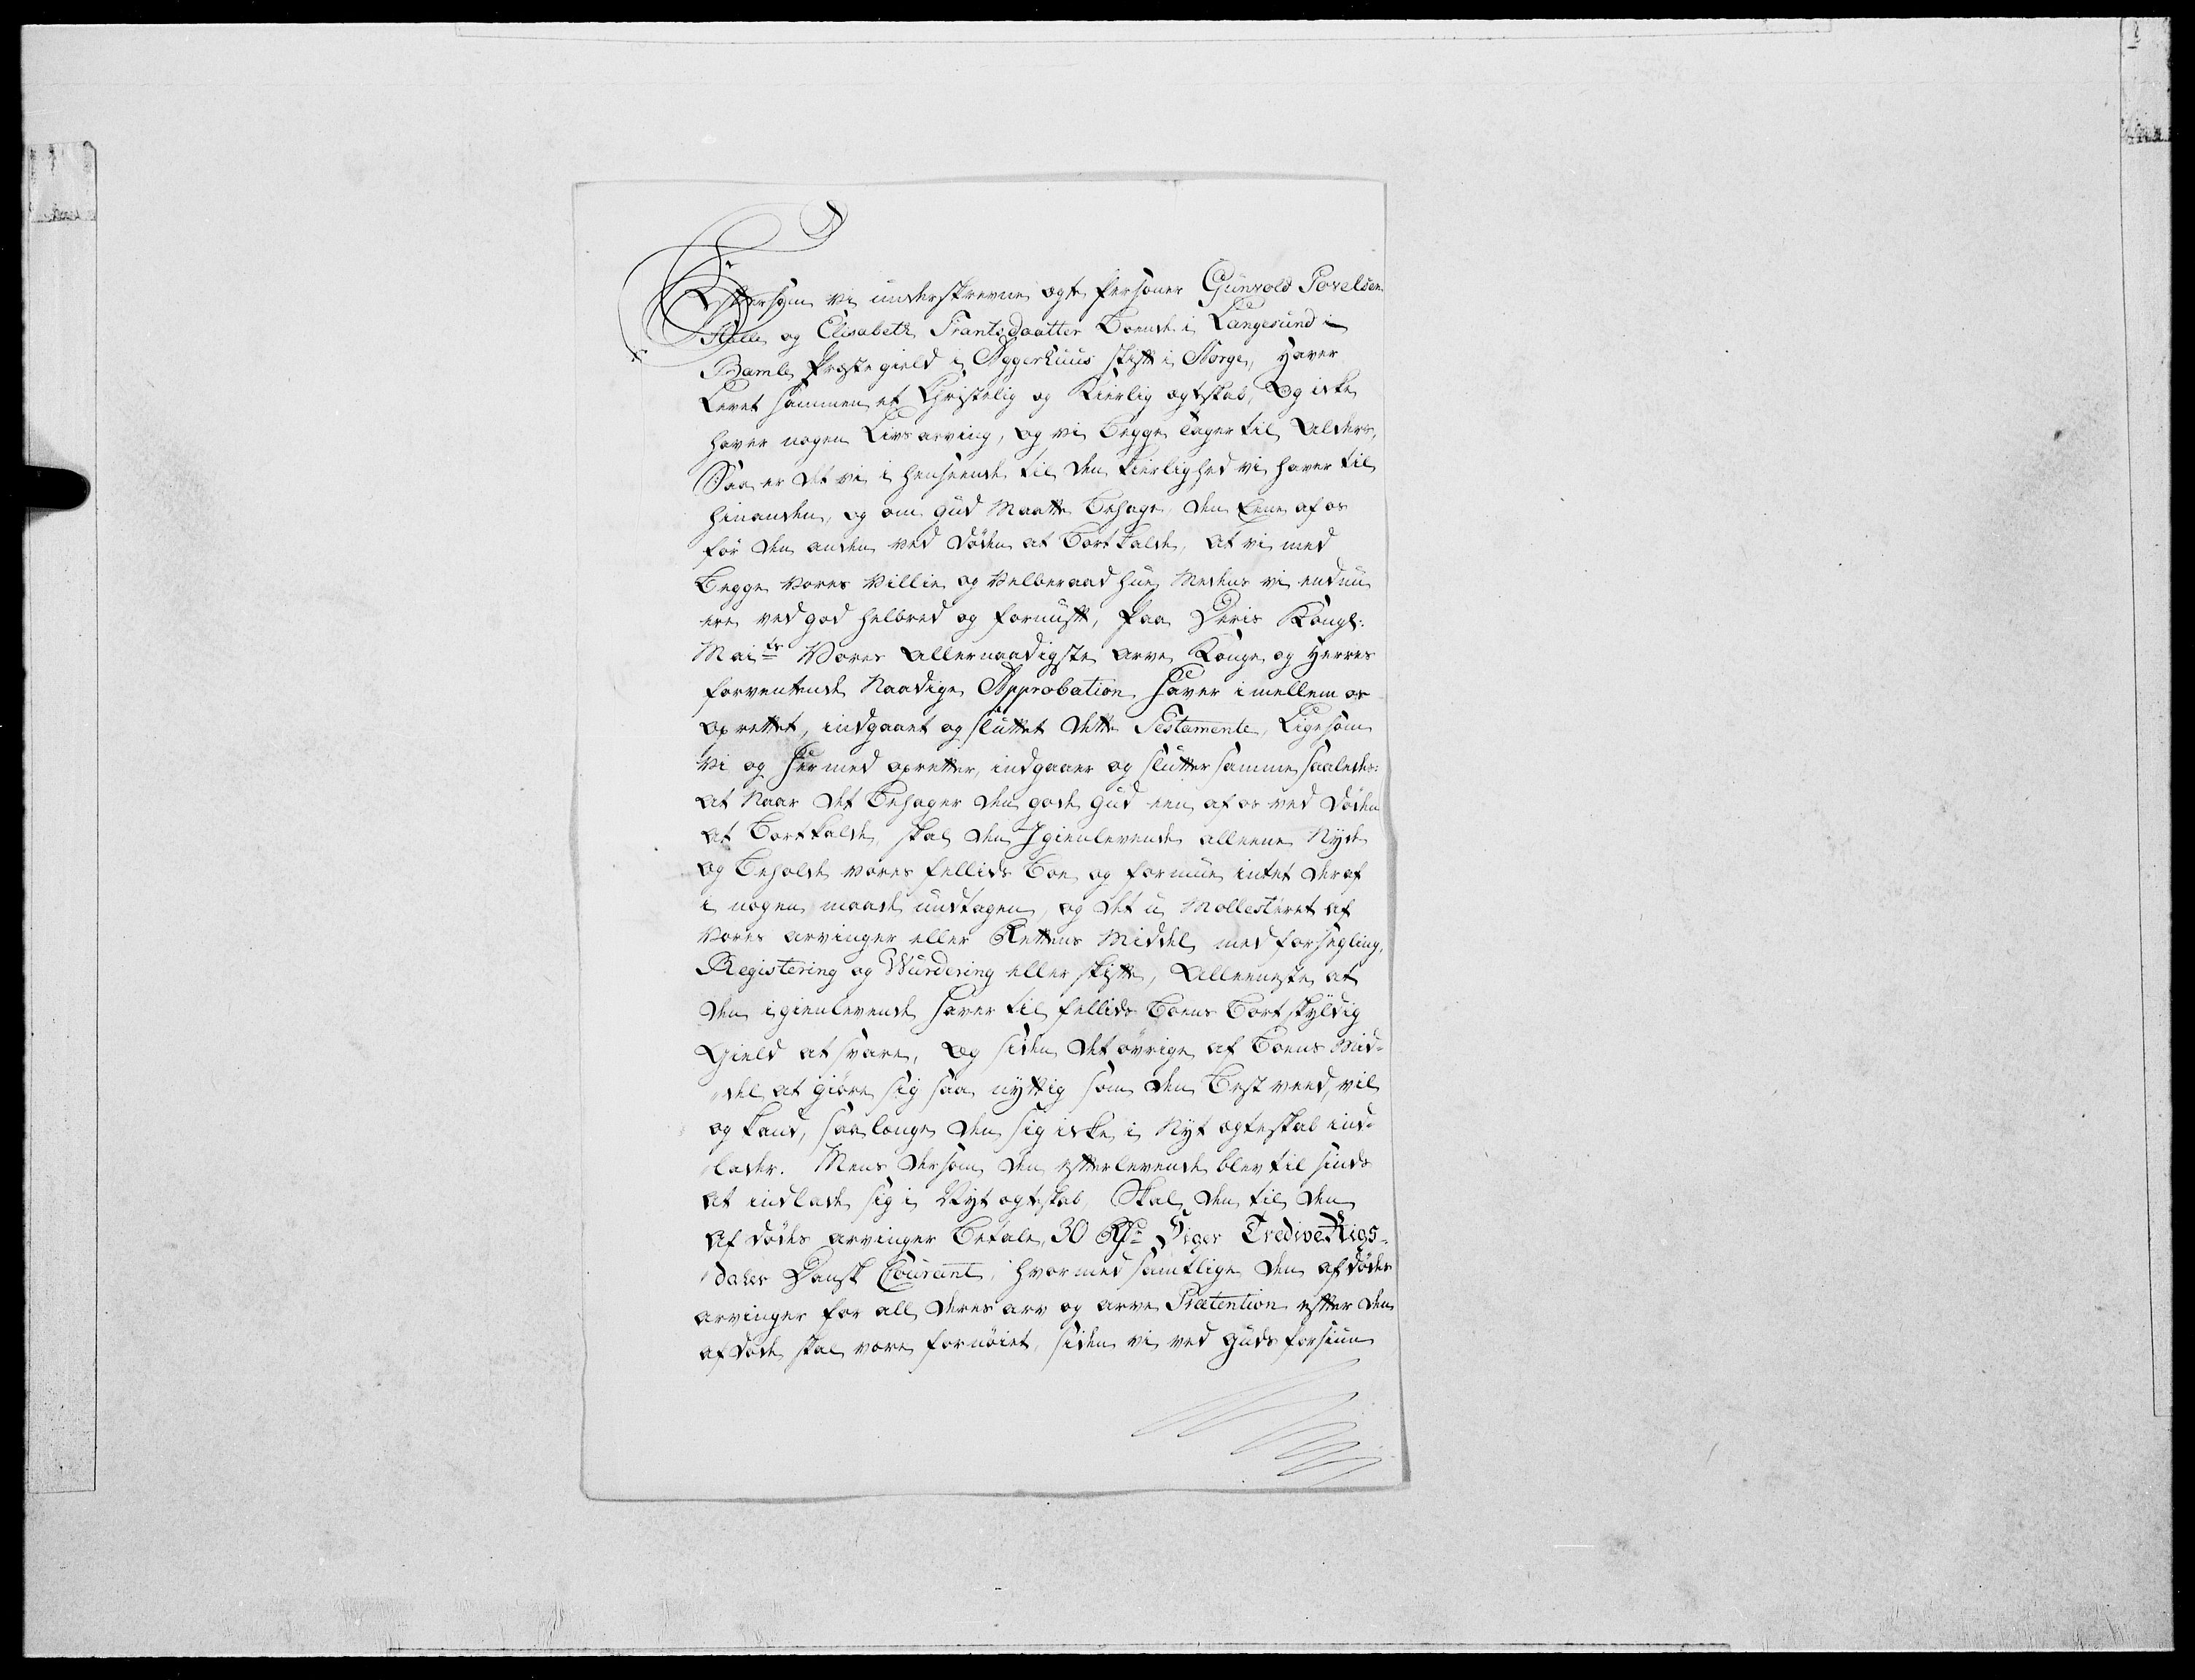 Eftersom vi underskrevne ægte Personer Gunvold Povelsen
Helle og Elisabeth Frantzdaatter boende i Langesund i
Bamble Præstegield i Aggerhuus stift i Norge, haver
Levet sammen et Christelig og Kierlig ægteskab, Og icke
haver nogen Livsarving, og vi begge tager til Alders,
Saa er det vi i henseende til den kierlighed vi haver til
hinanden, og om Gud Maatte behage, den Eene af os
før den anden ved døden at bortkalde, at vi med
begge vores Villie og Velberaad hue, Medens vi endnu
ere ved god helbred og fornuft, paa Deris Kongl:
Mai:ts Vores Allernaadigste Arve Konge og Herres
forventende Naadige Approbation haver imellem os
oprettet, indgaaet og sluttet dette Testamente, Ligesom
Vi og hermed opretter, indgaaer og slutter samme saaledes:
at Naar det behager den gode Gud een af os ved Døden
at bortkalde, skal den Igienlevende alleene Nyde
og beholde vores fellids boe og formue intet deraf
i nogen maade undtagen, og det u Mollesteret af
Vores arvinger eller Rettens Middel med forsegling,
Registering og Wurdering eller skifte, Alleeneste at
den igienlevende haver til fellids boens bortskyldig
Gield at svare, Og siden det øvrige af boens Mid-
del at giøre sig saa nyttig som den best veed, vil
og kand, saa længe den sig icke i Nyt ægteskab ind-
lader. Mens dersom den efterlevende blev til sinds
at indlade sig i Nyt ægteskab, Skal den til den
af dødes arvinger betale, 30 Rd Siger Tredive Rigs-
daler Dansk Courant, hvormed samtlige den afdødes
arvinger for all deres arv og arve Prætention efter den
afdøde skal være fornøiet, siden vi ved Guds forsiun